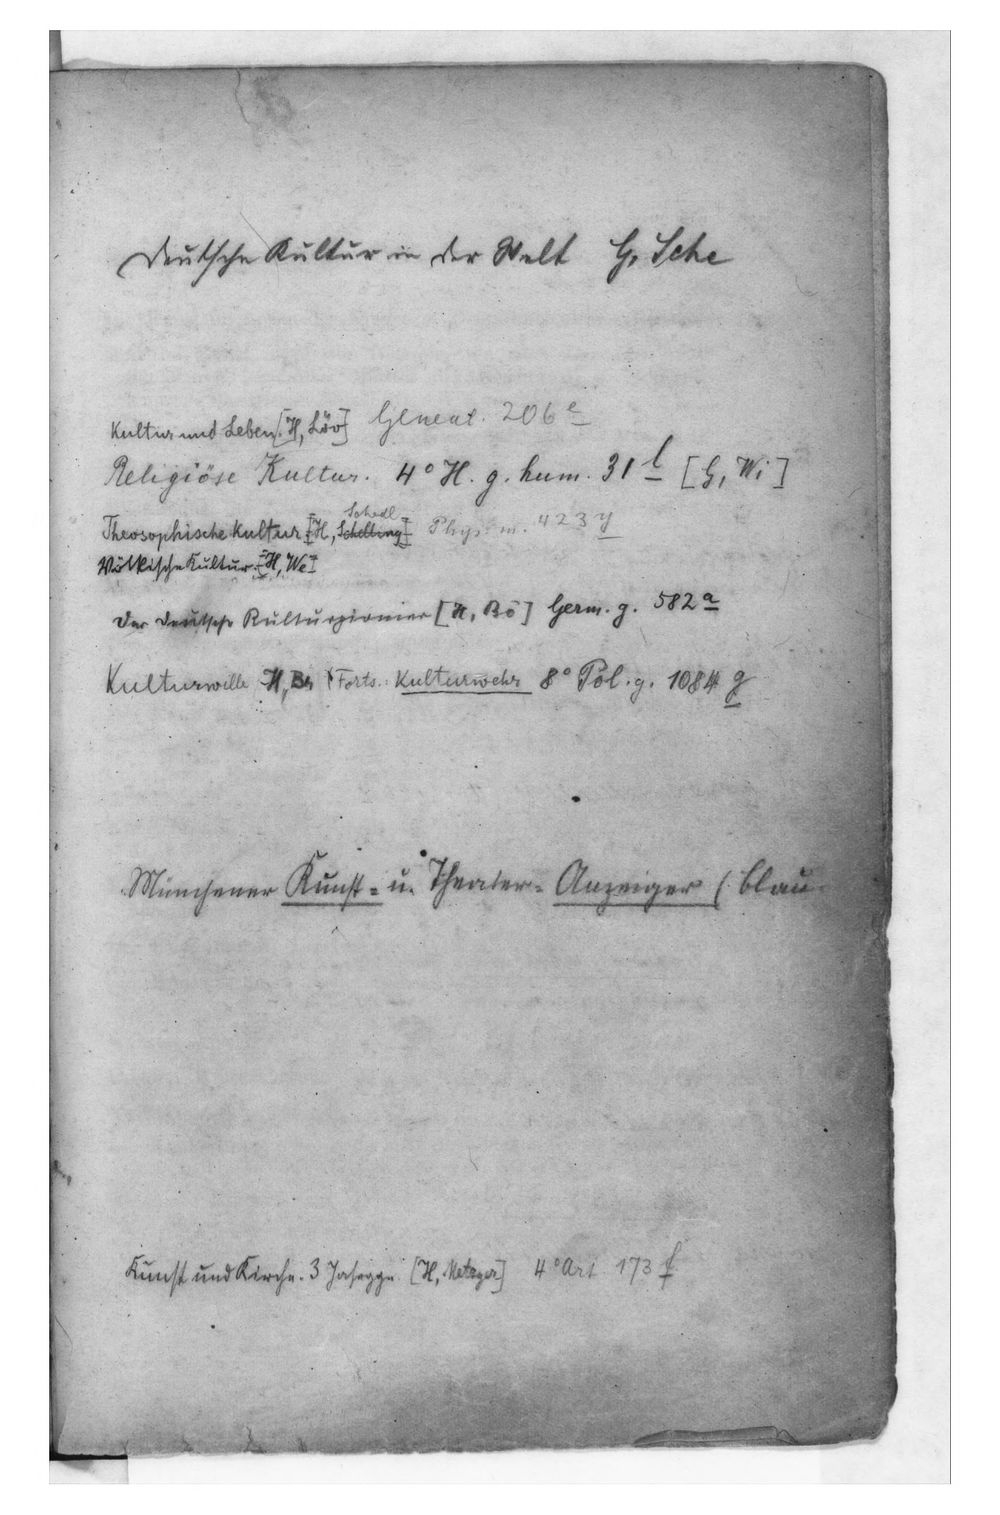 Deutsche Kultur in der Welt G, Sche
Kultur und Leben. [H, Löv] Geneal. 206 e
Religiöse Kultur. 4° H. g. hum. 31 l [G, Wi]
Schedl
Theosophische Kultur. [H, Schelling] Phys. m. 423 y
Völkische Kultur. [H, We]
Der deutsche Kulturpionier [H, Bö] Germ. g. 582 a
Kulturwille H, Br (Forts.: Kulturwehr 8° Pol. g. 1084 g
Münchener Kunst- u. Theater-Anzeiger (blau
Kunst und Kirche. 3 [H, Metzger] 4° Art 173 f